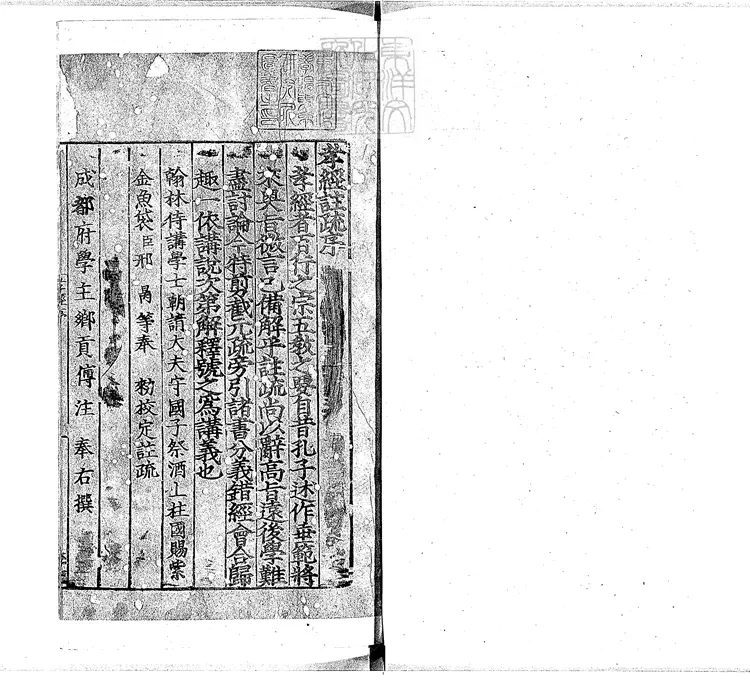 孝經註疏序
孝經者百行之宗五教之要自昔孔子述作垂範將
來奥旨微言已備解乎註疏尚以辭高旨遠後學難
盡討論今特剪截元疏旁引諸書分義錯經會合歸
趣一依講說次第解釋號之爲講義也
翰林侍講學士朝請大夫守國子祭酒上柱國賜紫
金魚袋臣邢昺等奉 勑校定註疏
成都府學主鄉貢傅注 奉右撰